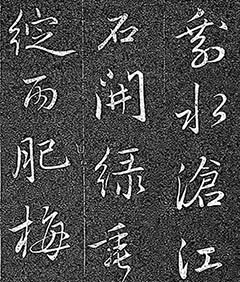 剩水滄江
石開綠垂
綻雨肥梅